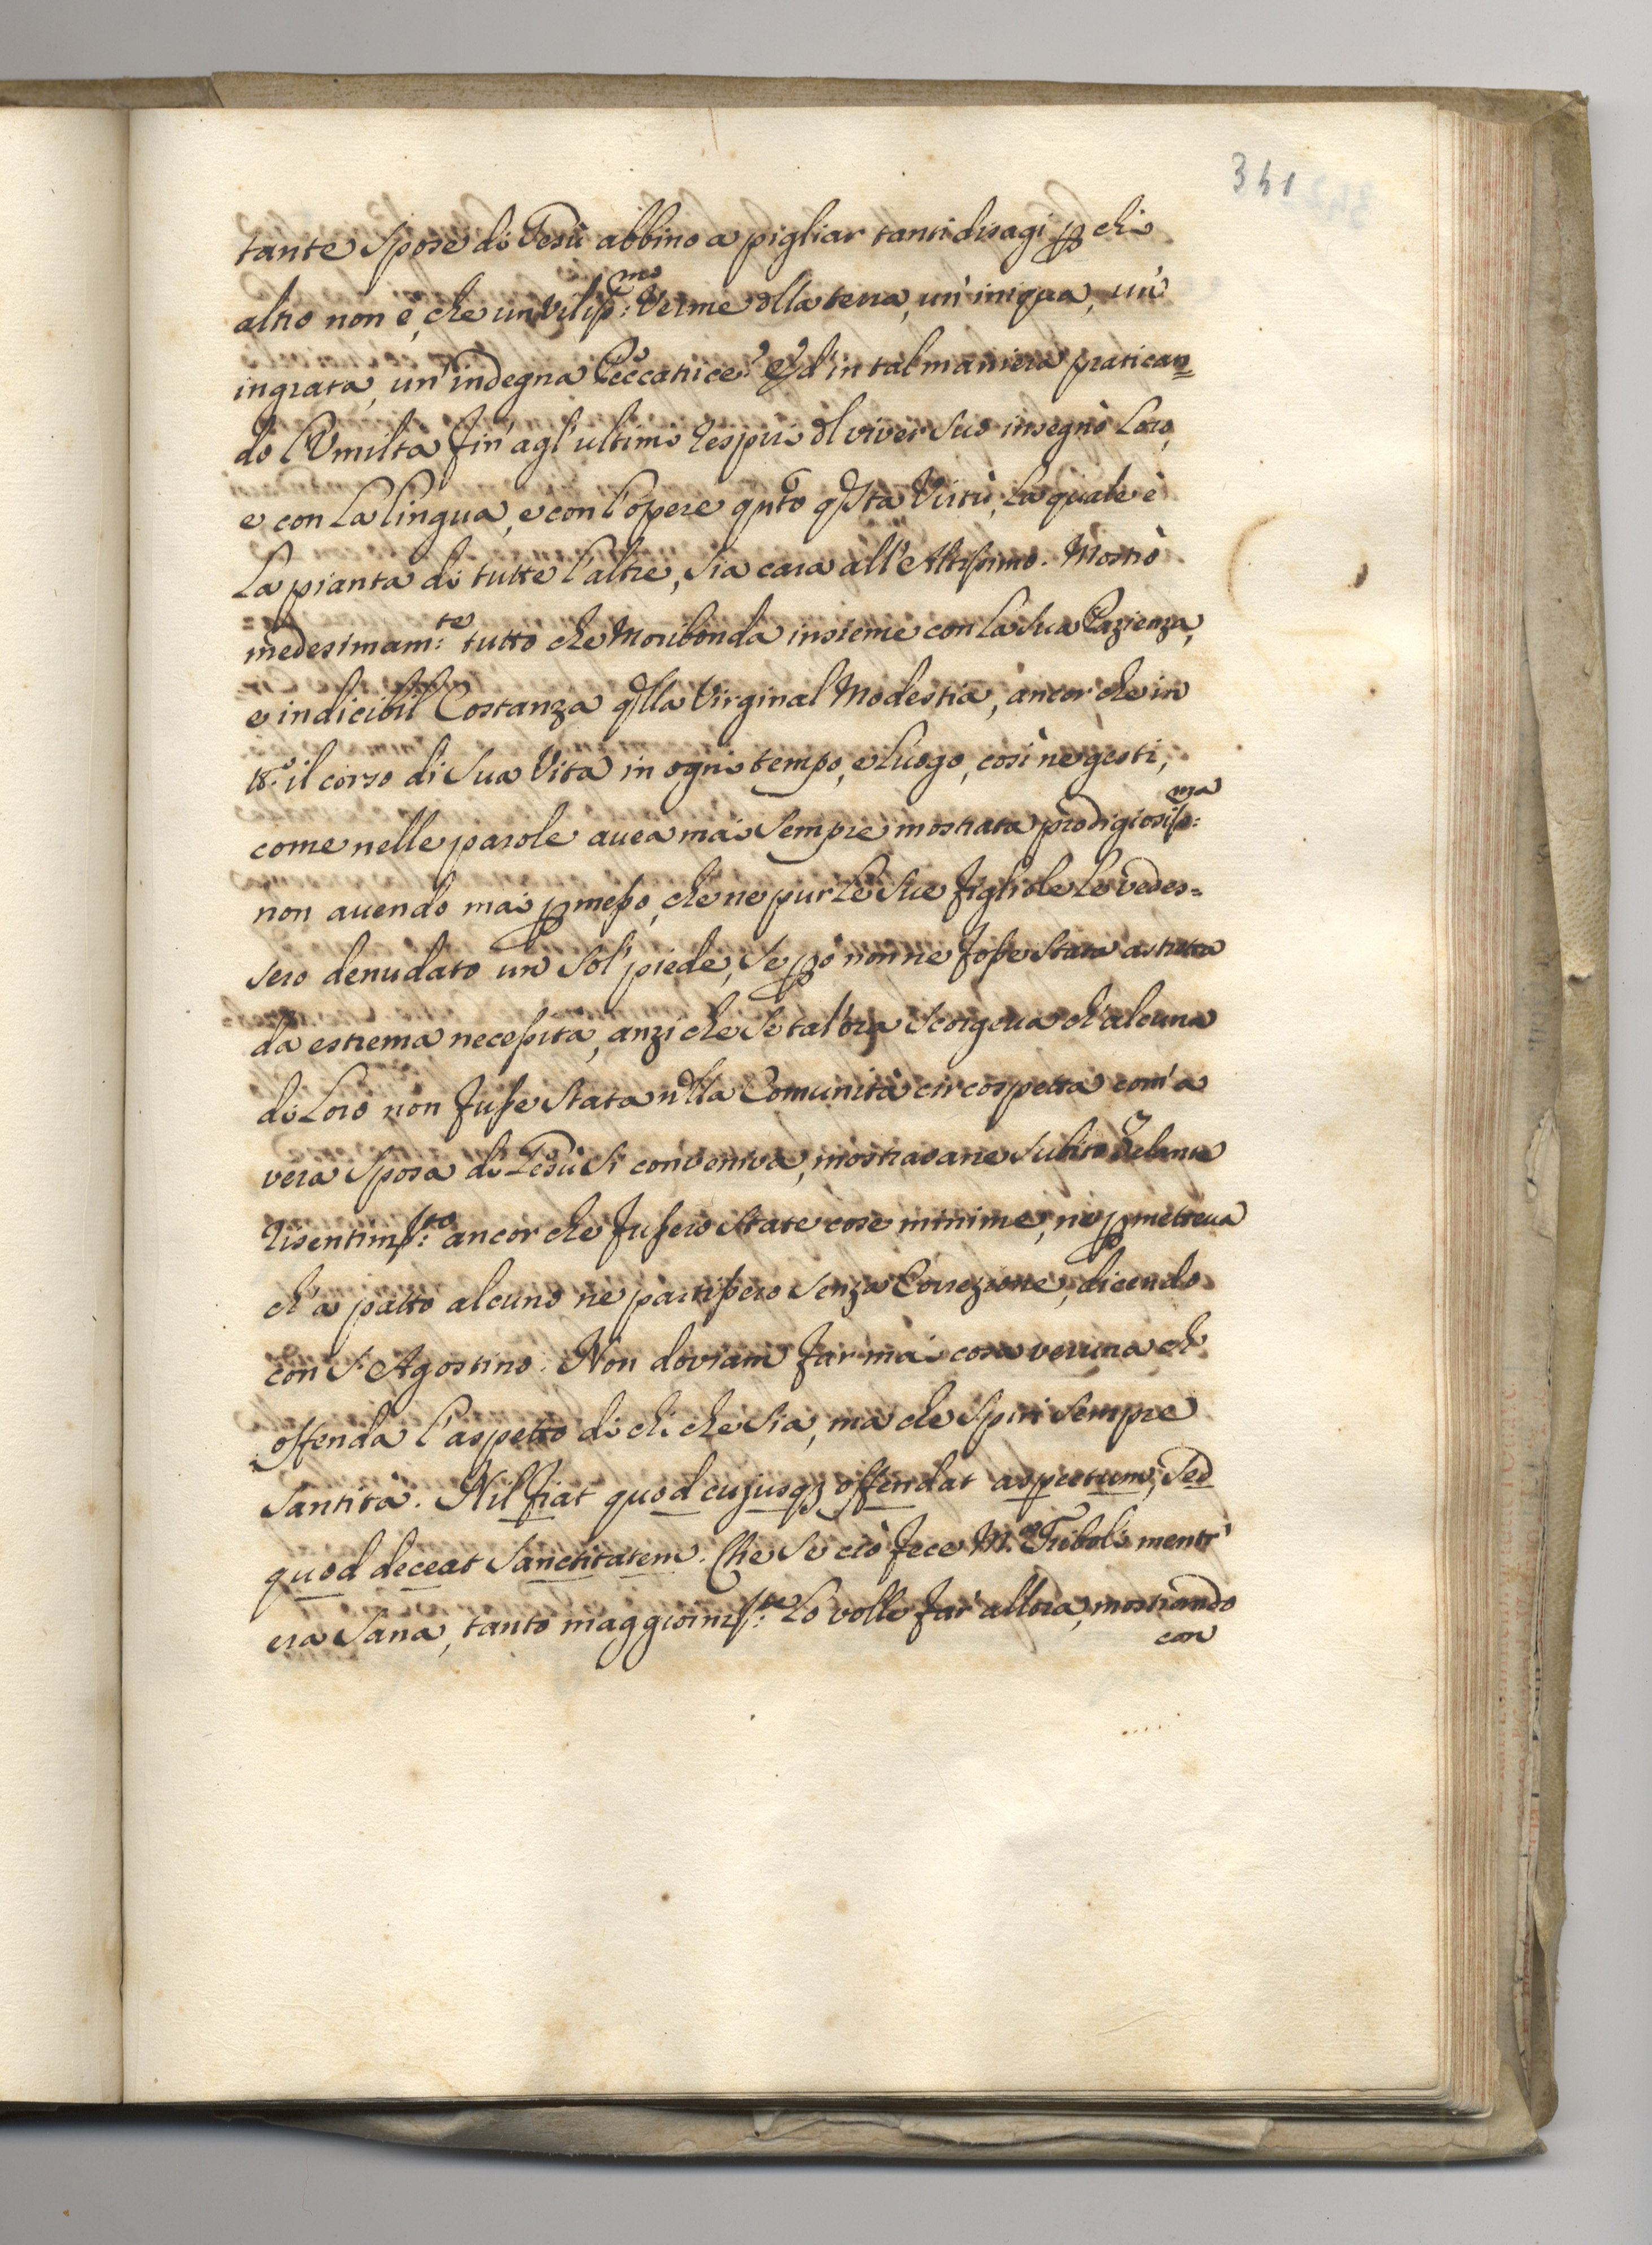 341
tante Spose di Gesù abbino a pigliar tanti disagi ꝑ chi
altro non è, che un Viliss:mo Verme dlla terra, un' iniqua, un'
ingrata, un' indegna Peccatrice? Ed in tal maniera pratican=
do l'Umiltà fin' agl' ultimi respiri dl viver suo insegnò Loro,
e con la lingua, e con l'opere qnto qsta Virtù, la quale è
La pianta di tutte l'altre, sia cara all' Altissimo. Mostrò
medesimam:te tutto che Moribonda insieme con la sua Pazienza,
e indicibil Costanza qlla Virginal Modestia, ancor che in
tt.o il corso di Sua Vita in ogni tempo, e Luogo, così ne gesti,
come nelle parole avea mai sempre mostrata prodigiosiss:ma
non avendo mai ꝑmesso, che ne pur le Sue figliole le vedes=
sero denudato un sol' piede, se ꝑò non ne fosse stata astretta
da estrema necessità, anzi che se tal' ora scorgeva ch' alcuna
di Loro non fusse stata nlla Comunità circospetta com' a
vera Sposa di Gesù si conveniva, mostravane subito Zelante
Risentim:to ancor che fussero state cose minime, ne ꝑmetteva
ch' a patto alcuno ne partissero senza Correzione, dicendo
con S. Agostino. Non doviam far mai cosa veruna ch'
offenda l'aspetto di chi che sia, ma che spiri sempre
Santità. Nil fiat quod cujusqꝫ offendat aspectum, Sed
quod deceat Sanctitatem. Che se ciò fece M.e Triboli mentr'
era Sana, tanto maggiorm:te Lo volle far' allora, mostrando
con